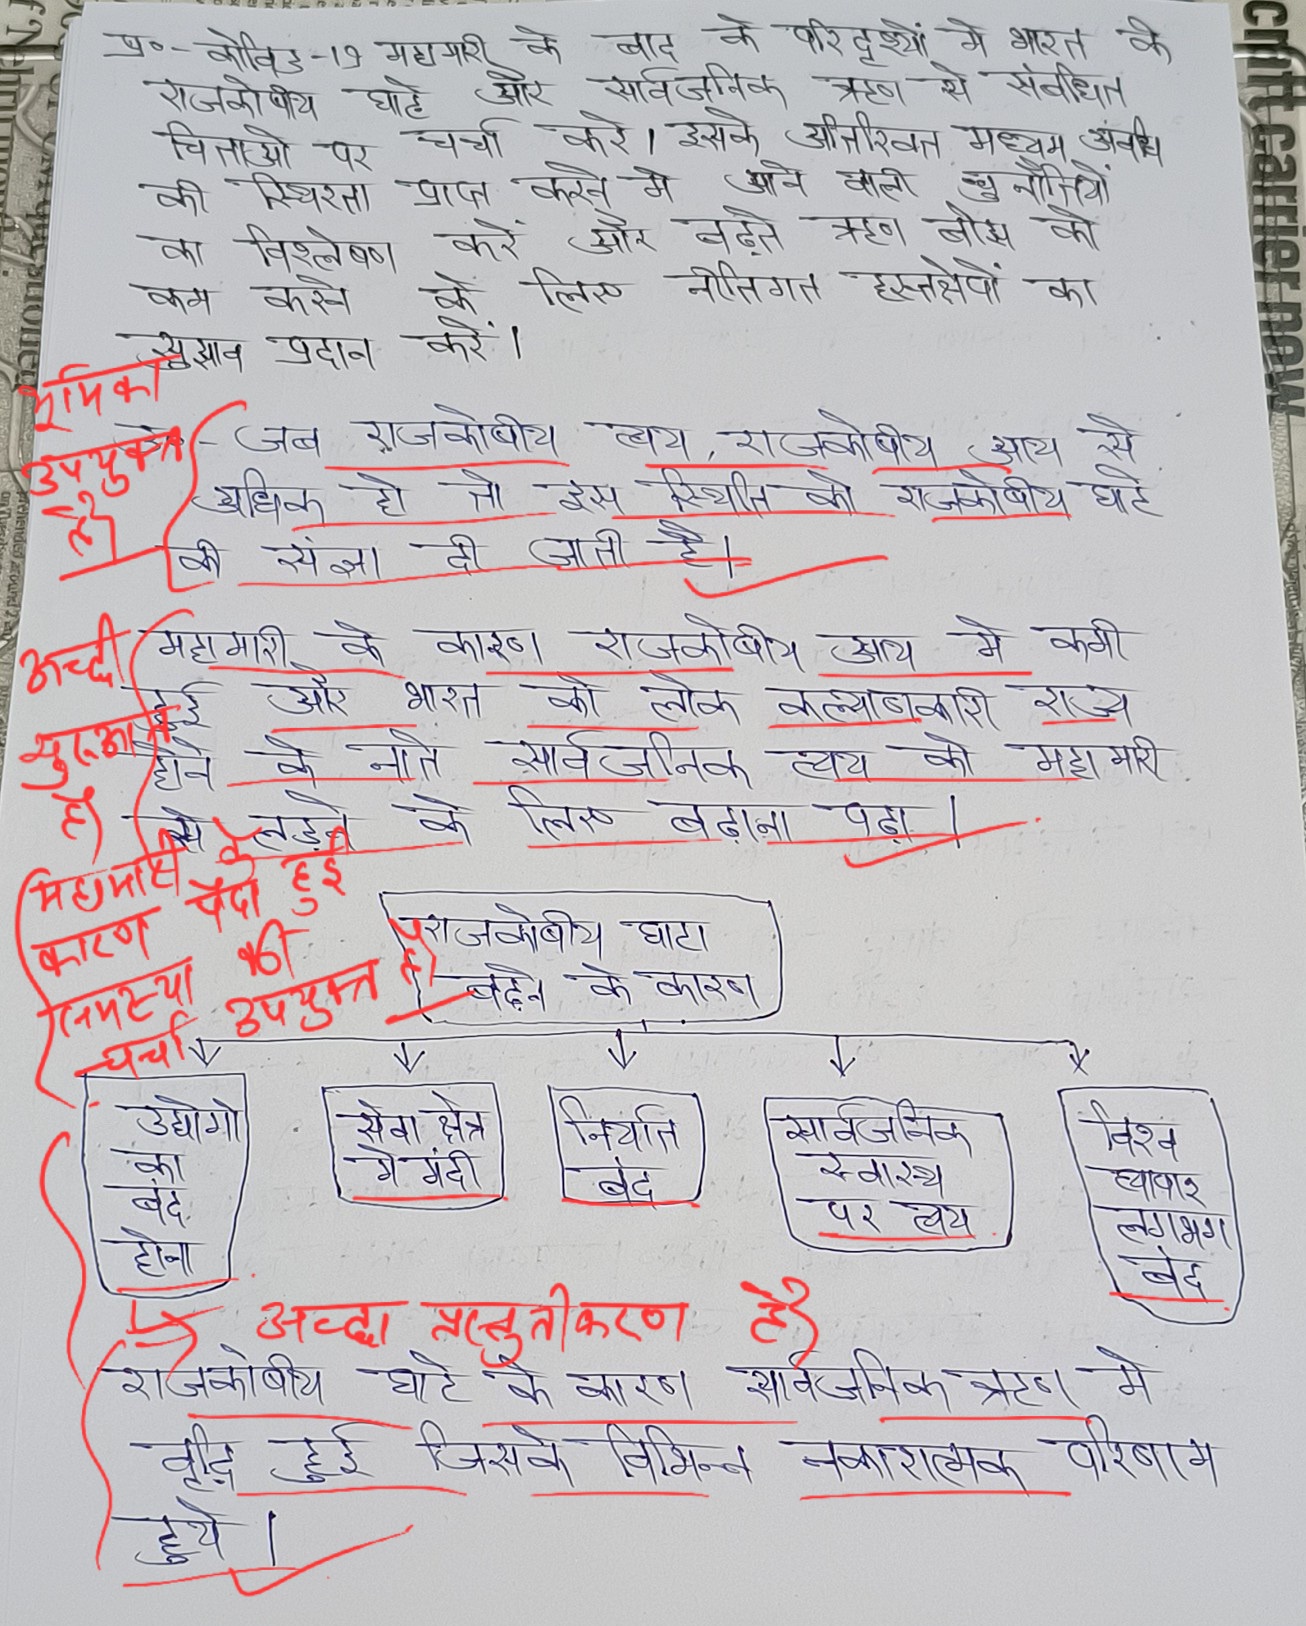 प्र०- कोविड-19 महामारी के बाद के परिदृश्यों में भारत के
राजकोषीय घाटे और सार्वजनिक ऋण से संबंधित
चिंताओं पर चर्चा करें। इसके अतिरिक्त मध्यम अवधि
की स्थिरता प्राप्त करने में आने वाली चुनौतियों
का विश्लेषण करें और बढ़ते ऋण बोझ को
कम करने के लिए नीतिगत हस्तक्षेपों का
सुझाव प्रदान करें।
भूमिका
उपयुक्त
है।
उ०- जब राजकोषीय व्यय, राजकोषीय आय से
अधिक हो तो इस स्थिति को राजकोषीय घाटे
की संज्ञा दी जाती है।
अच्छी
शुरुआत
है।
महामारी के कारण राजकोषीय आय में कमी
हुई और भारत को लोक कल्याणकारी राज्य
होने के नाते सार्वजनिक व्यय को महामारी
से लड़ने के लिए बढ़ाना पढ़ा।
महामारी के
कारण पैदा हुई
समस्या की
चर्चा उपयुक्त है।
राजकोषीय घाटा
बढ़ने के कारण
उद्योगो
का
बंद
होना
सेवा क्षेत्र
मे मंदी
निर्यात
बंद
सार्वजनिक
स्वास्थ्य
पर व्यय
विश्व
व्यापार
लगभग
बंद
अच्छा प्रस्तुतीकरण है।
राजकोषीय घाटे के कारण सार्वजनिक ऋण मे
वृद्धि हुई जिसके विभिन्न नकारात्मक परिणाम
हुये।